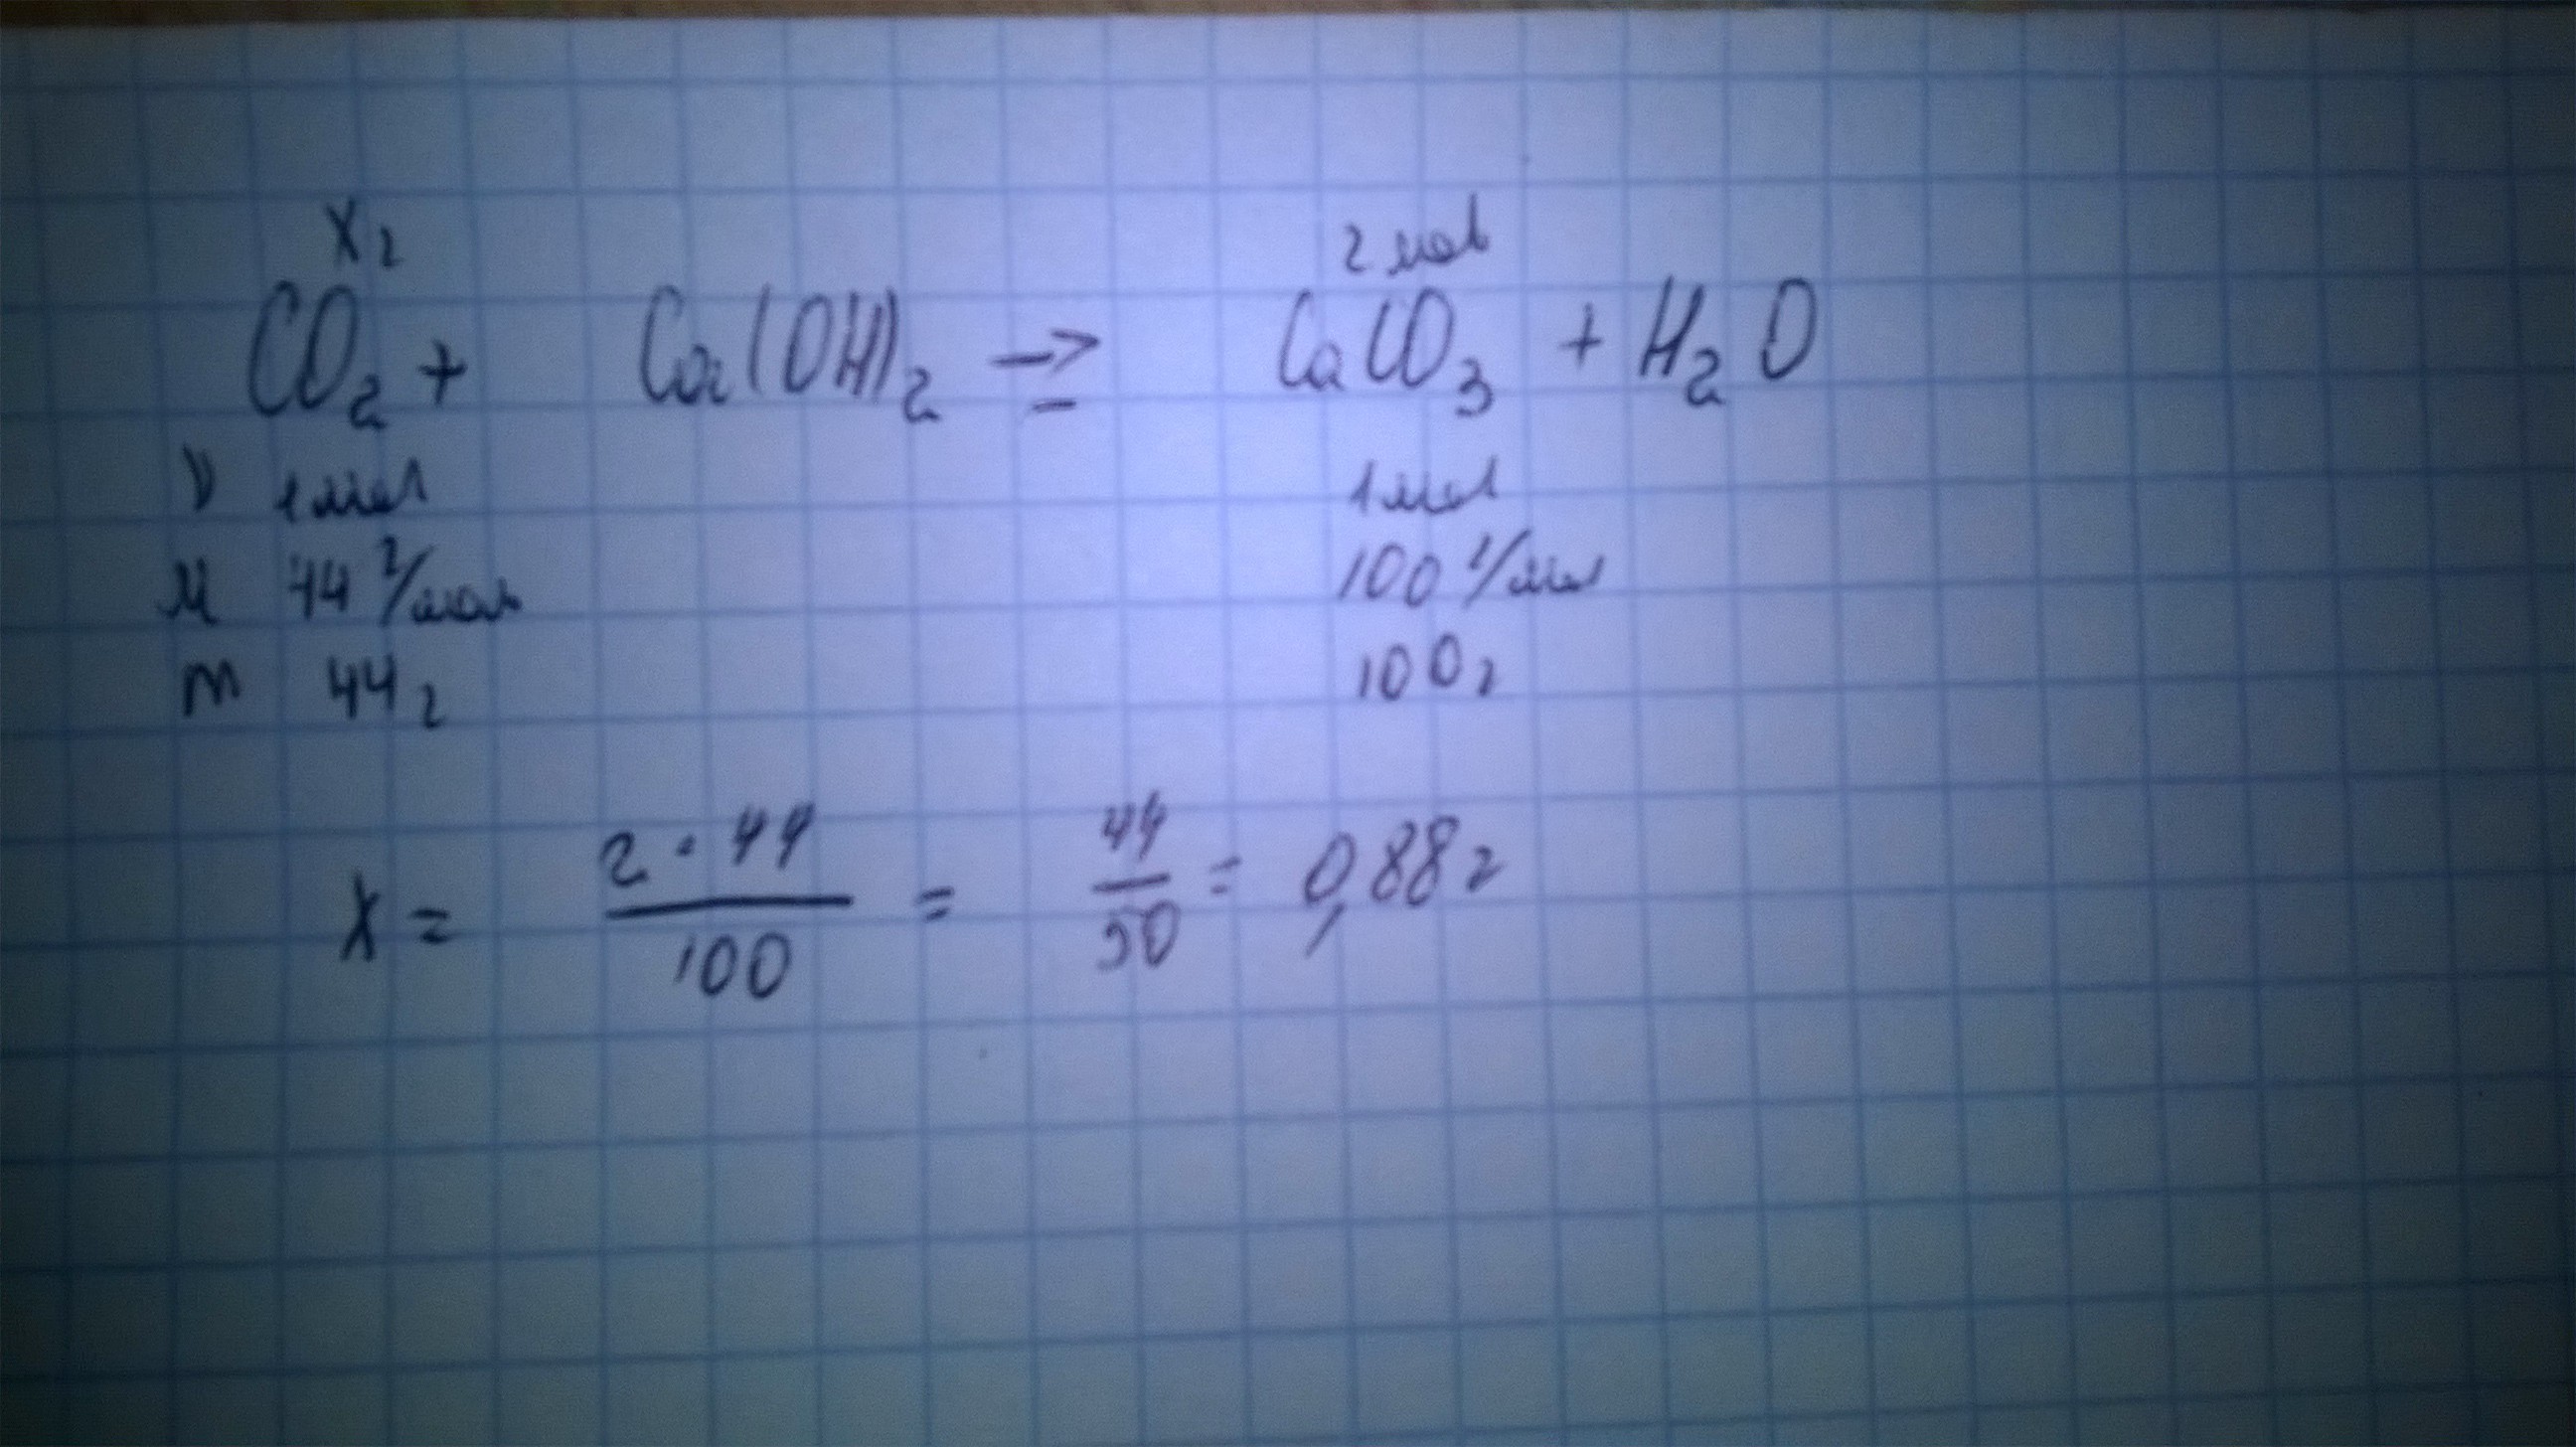 x г 2 моль
CO₂ + Ca(OH)₂ => CaCO₃ + H₂O
ν 1 моль 1 моль
M 44 г/моль 100 г/моль
m 44 г 100 г
x = 2 · 44 / 100 = 44 / 50 = 0,88 г